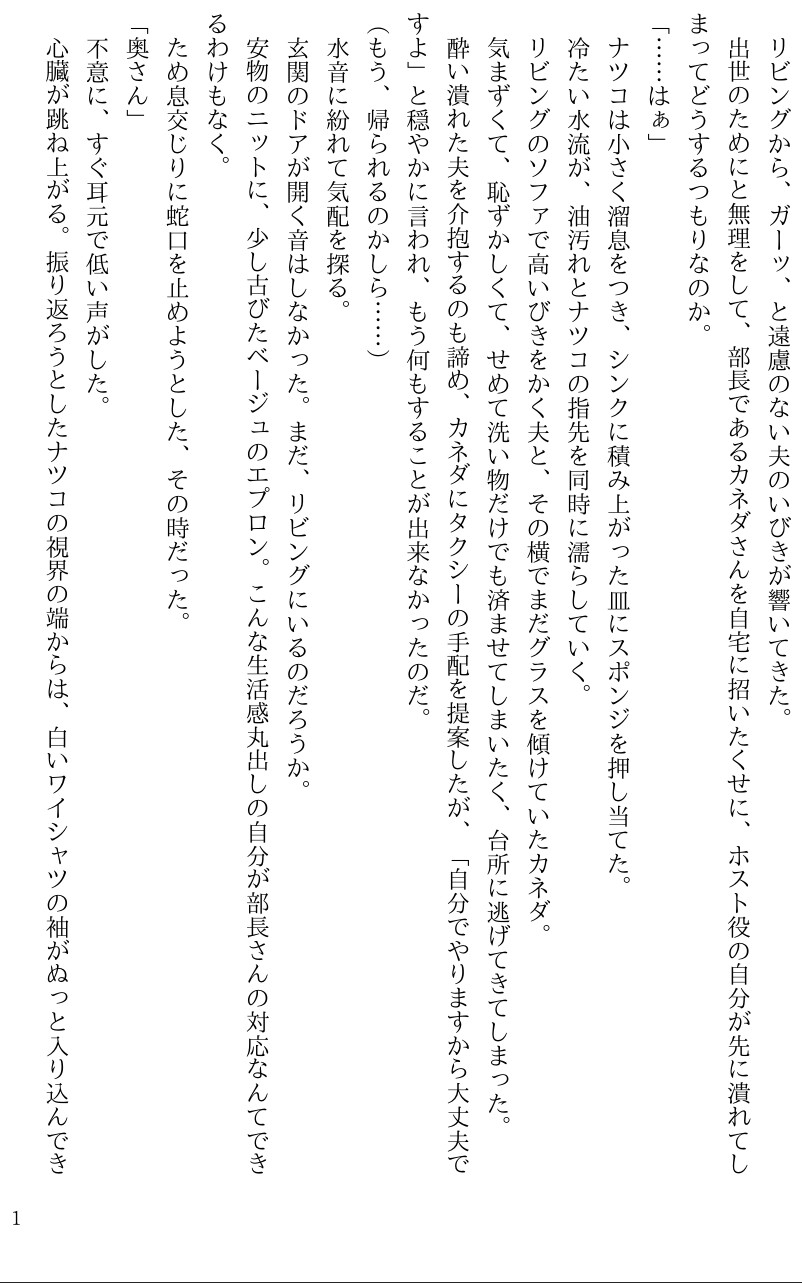 リビングから、ガーッ、と遠慮のない夫のいびきが響いてきた。
出世のためにと無理をして、部長であるカネダさんを自宅に招いたくせに、ホスト役の自分が先に潰れてし
まってどうするつもりなのか。
「……はぁ」
ナツコは小さく溜息をつき、シンクに積み上がった皿にスポンジを押し当てた。
冷たい水流が、油汚れとナツコの指先を同時に濡らしていく。
リビングのソファで高いびきをかく夫と、その横でまだグラスを傾けていたカネダ。
気まずくて、恥ずかしくて、せめて洗い物だけでも済ませてしまいたく、台所に逃げてきてしまった。
酔い潰れた夫を介抱するのも諦め、カネダにタクシーの手配を提案したが、「自分でやりますから大丈夫で
すよ」と穏やかに言われ、もう何もすることが出来なかったのだ。
（もう、帰られるのかしら……）
水音に紛れて気配を探る。
玄関のドアが開く音はしなかった。まだ、リビングにいるのだろうか。
安物のニットに、少し古びたベージュのエプロン。こんな生活感丸出しの自分が部長さんの対応なんてでき
るわけもなく。
ため息交じりに蛇口を止めようとした、その時だった。
「奥さん」
不意に、すぐ耳元で低い声がした。
心臓が跳ね上がる。振り返ろうとしたナツコの視界の端からは、白いワイシャツの袖がぬっと入り込んでき
1